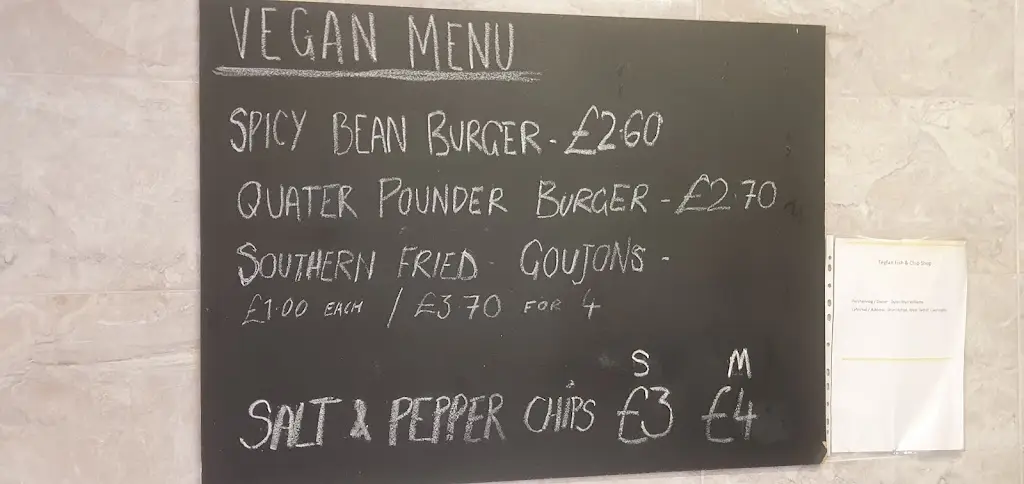 VEGAN MENU
SPICY BEAN BURGER - £2.60
QUATER POUNDER BURGER - £2.70
SOUTHERN FRIED GOUJONS -
£1.00 EACH / £3.70 FOR 4
S M
SALT & PEPPER CHIPS £3 £4
Fish & Chip Shop